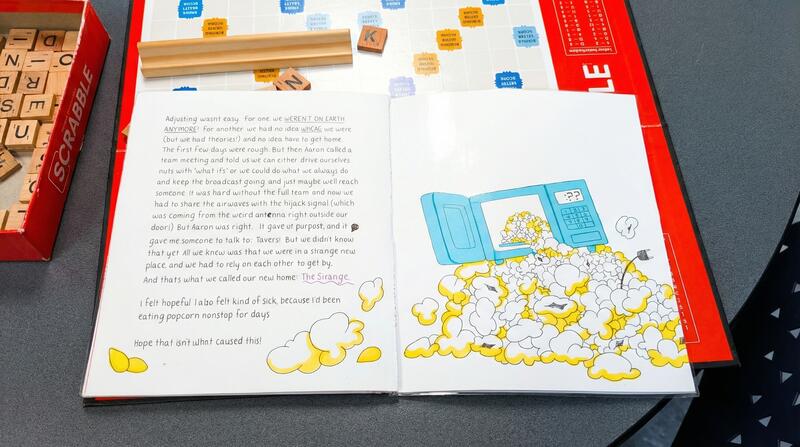 SCRABBLE
K
N
Adjusting wasnt easy. For one, we WEREN'T ON EARTH
ANYMORE! For another we had no idea WHCAG we were
(but we had theories!) and no idea to get home.
The first few days were rough. But then Aaron called a
team meeting and told us we can either drive ourselves
nuts with "what ifs" or we could do what we always do
and keep the broadcast going and just maybe well reach
someone. It was hard without the full team and now we
had to share the airwaves with the hijack signal (which
was coming from the weird antenna right outside our
door!) But Aaron was right. It gave ut purpost, and it
gave me someone to talk to: Tavers! But we didn't know
that yet All we knew was that we were in a strange new
place, and we had to rely on each other to get by.
And thats what we called our new home: The Sirange.
I felt hopeful I also felt kind of sick, because I'd been
eating popcorn nonstop for days
Hope that isn't whnt caused this!
:??